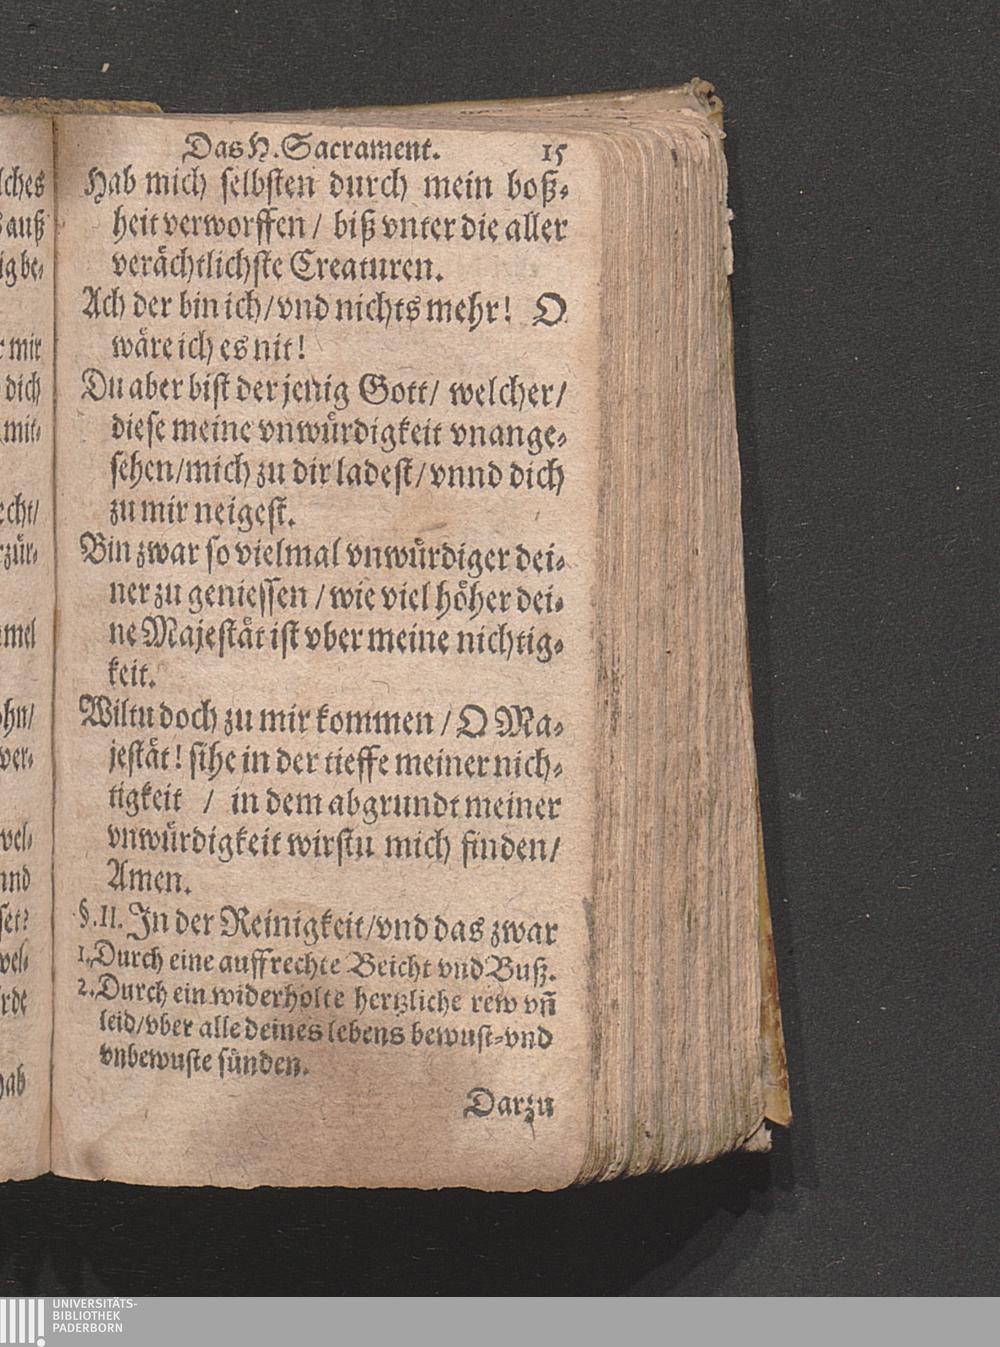 lches
auß
ig be⸗
mir
dich
mit⸗
echt/
zür⸗
mel
ohn/
ver⸗
wel⸗
nnd
set?
wel⸗
rde
hab
Das H. Sacrament. 15
Hab mich selbsten durch mein boß⸗
heit verworffen / biß vnter die aller
verächtlichste Creaturen.
Ach der bin ich / vnd nichts mehr! O
wäre ich es nit!
Du aber bist der jenig Gott / welcher /
diese meine vnwürdigkeit vnange⸗
sehen / mich zu dir ladest / vnnd dich
zu mir neigest.
Bin zwar so vielmal vnwürdiger dei⸗
ner zu geniessen / wie viel höher dei⸗
ne Majestät ist vber meine nichtig⸗
keit.
Wiltu doch zu mir kommen / O Ma⸗
jestät! sihe in der tieffe meiner nich⸗
tigkeit / in dem abgrundt meiner
vnwürdigkeit wirstu mich finden /
Amen.
§. II. In der Reinigkeit / vnd das zwar
1. Durch eine auffrechte Beicht vnd Buß.
2. Durch ein widerholte hertzliche rew vñ
leid / vber alle deines lebens bewust⸗vnd
vnbewuste sünden.
Darzu
UNIVERSITÄTS-
BIBLIOTHEK
PADERBORN